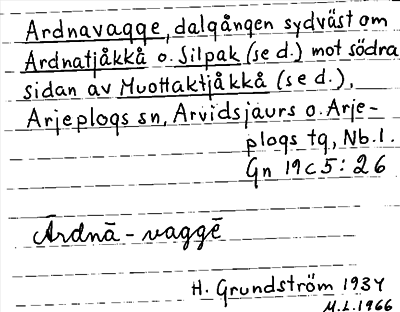 Ardnavagge, dalgången sydväst om
Ardnatjåkkå o. Silpak (se d.) mot södra
sidan av Muottaktjåkkå (se d.),
Arjeplogs sn, Arvidsjaurs o. Arje-
plogs tg, Nb.l.
Gn 19c5:26
Ārdnā-vaggē
H. Grundström 1934
M.L.1966